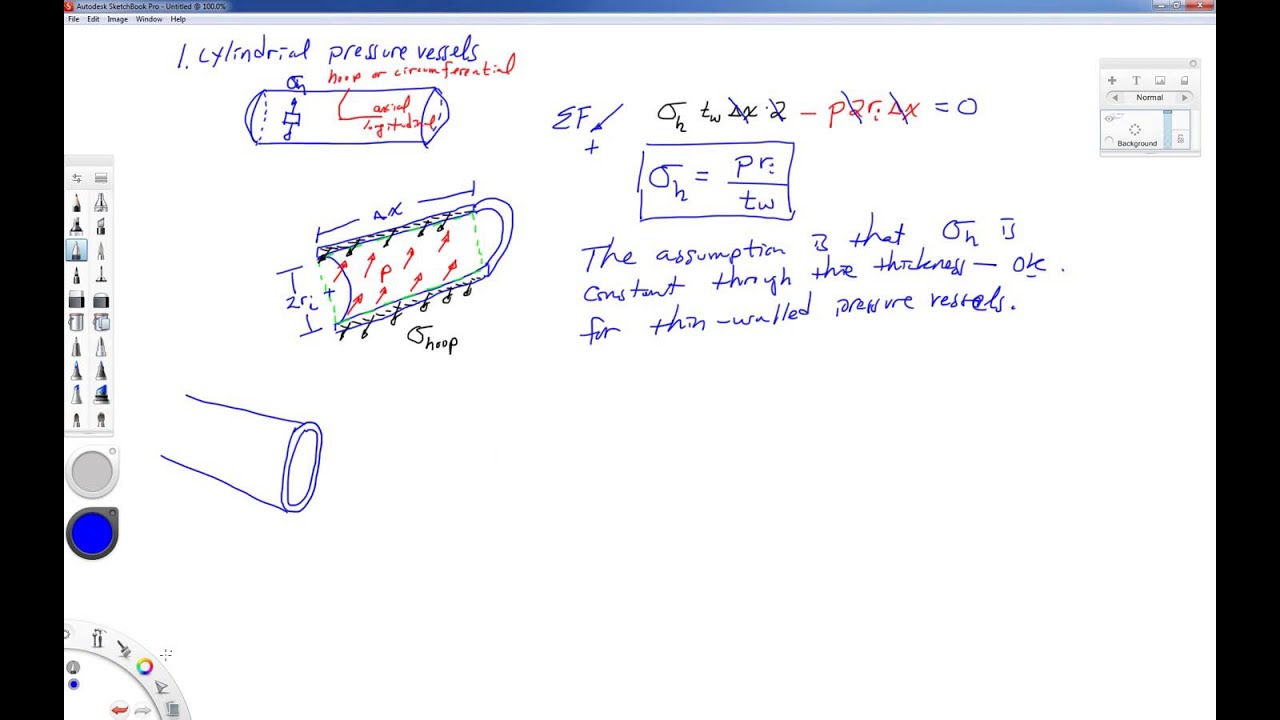 Autodesk SketchBook Pro - Untitled @ 100.0%
File Edit Image Window Help
1. Cylindrial pressure vessels
hoop or circumferential
σh
axial
logitudinal
ΣF
+
σh tw Δx · 2 - p 2 ri Δx = 0
σh = p ri / tw
Δx
p
2ri
+
σhoop
The assumption is that σh is
constant through the thickness - ok.
for thin-walled pressure vessels.
Normal
Background